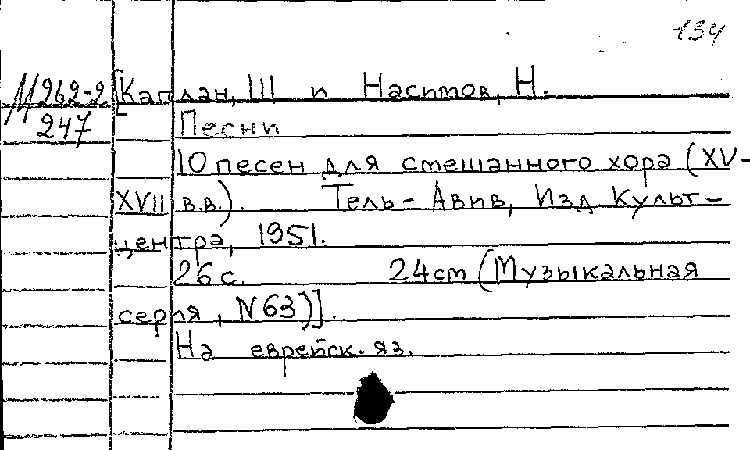 134
М262-2 [Каплан, Ш и Насимов, Н.
247 Песни
10 песен для смешанного хора (XV-
XVII в.в.). Тель-Авив, Изд Культ-
центра, 1951.
26 с. 24cm (Музыкальная
серия, N 63)].
На еврейск. яз.